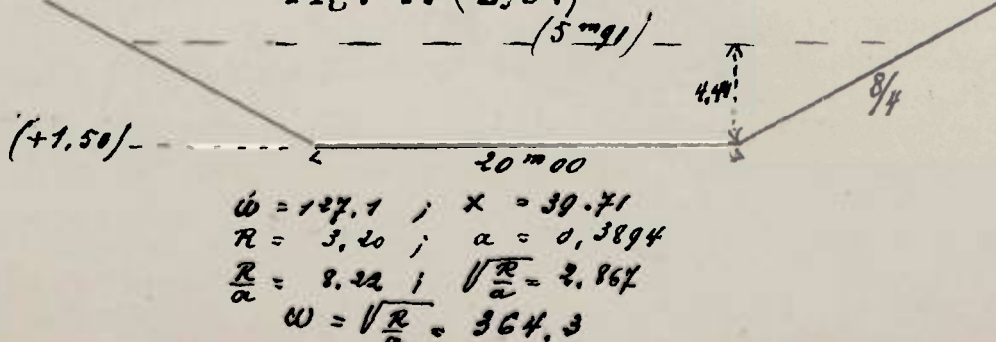 (5 m91)
4,41
8/4
(+1,50)
20 m 00
ω = 127,1 ; x = 39.71
R = 3,20 ; a = 0,3894
R/a = 8.22 ; √R/a = 2,867
ω = √R/a = 364,3